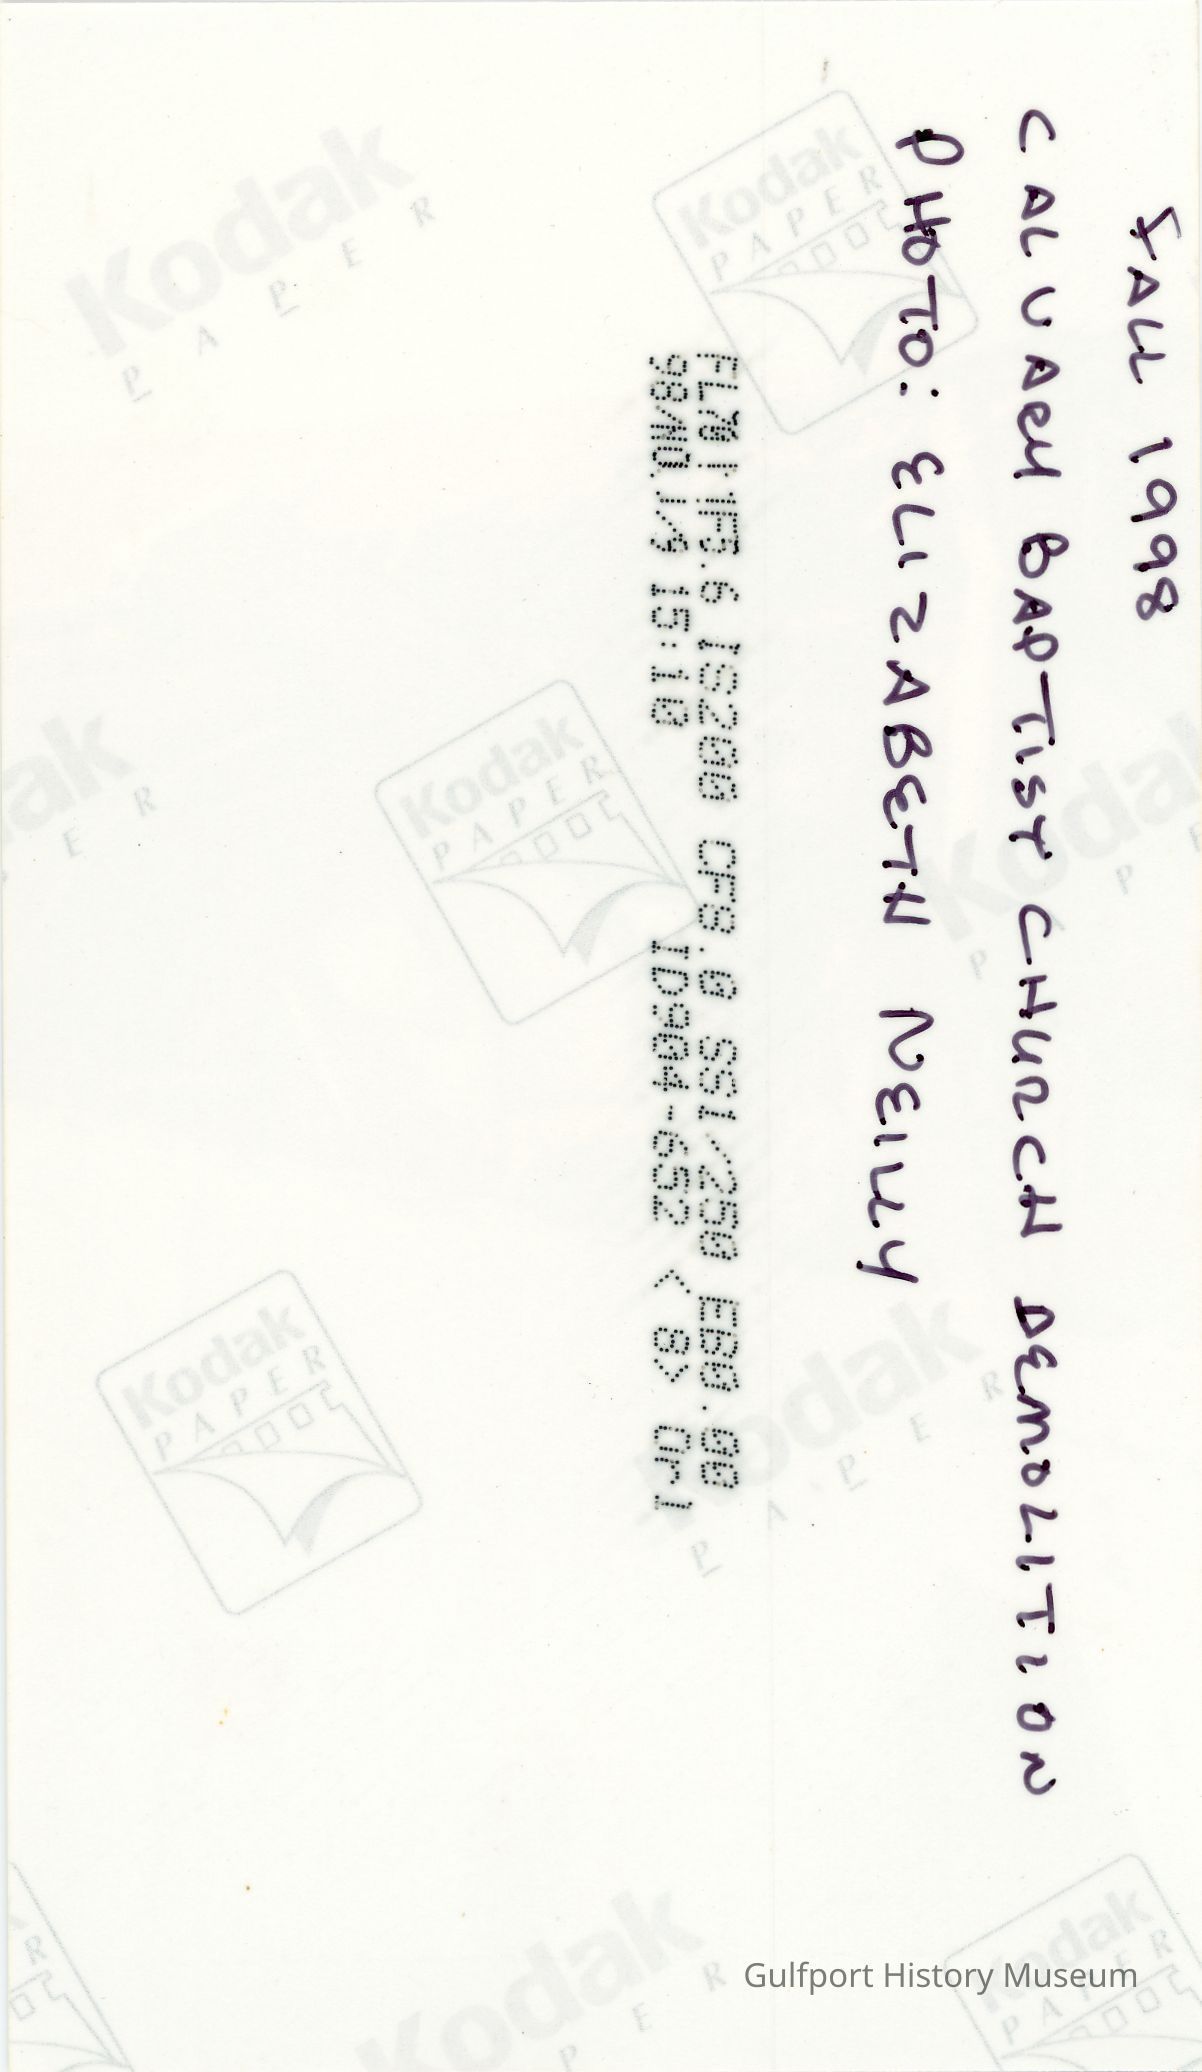 FALL 1998
CALVARY BAPTIST CHURCH DEMOLITION
PHOTO: ELIZABETH NEILY
IS200 CF8.0 SS1/250 EB0.00
15:10 ID904-652 < 8> Or1
Kodak
PAPER
Kodak
PAPER
Kodak
PAPER
Kodak
PAPER
Kodak
PAPER
Kodak
PAPER
Kodak
PAPER
Kodak
PAPER
Gulfport History Museum